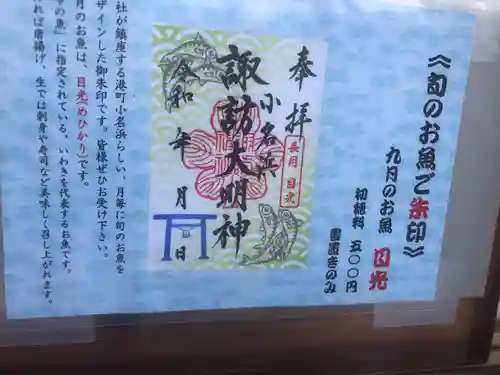 《旬のお魚ご朱印》
九月のお魚 目光
初穂料 五〇〇円
書置きのみ
奉拝
小名浜
長月 目光
諏訪大明神
令和 年 月 日
社が鎮座する港町小名浜らしい、月毎に旬のお魚を
ザインした御朱印です。皆様ぜひお受け下さい。
月のお魚は、目光(めひかり)です。
の魚」に指定されている、いわきを代表するお魚です。
れば唐揚げ、生では刺身や寿司など美味しく召し上がれます。